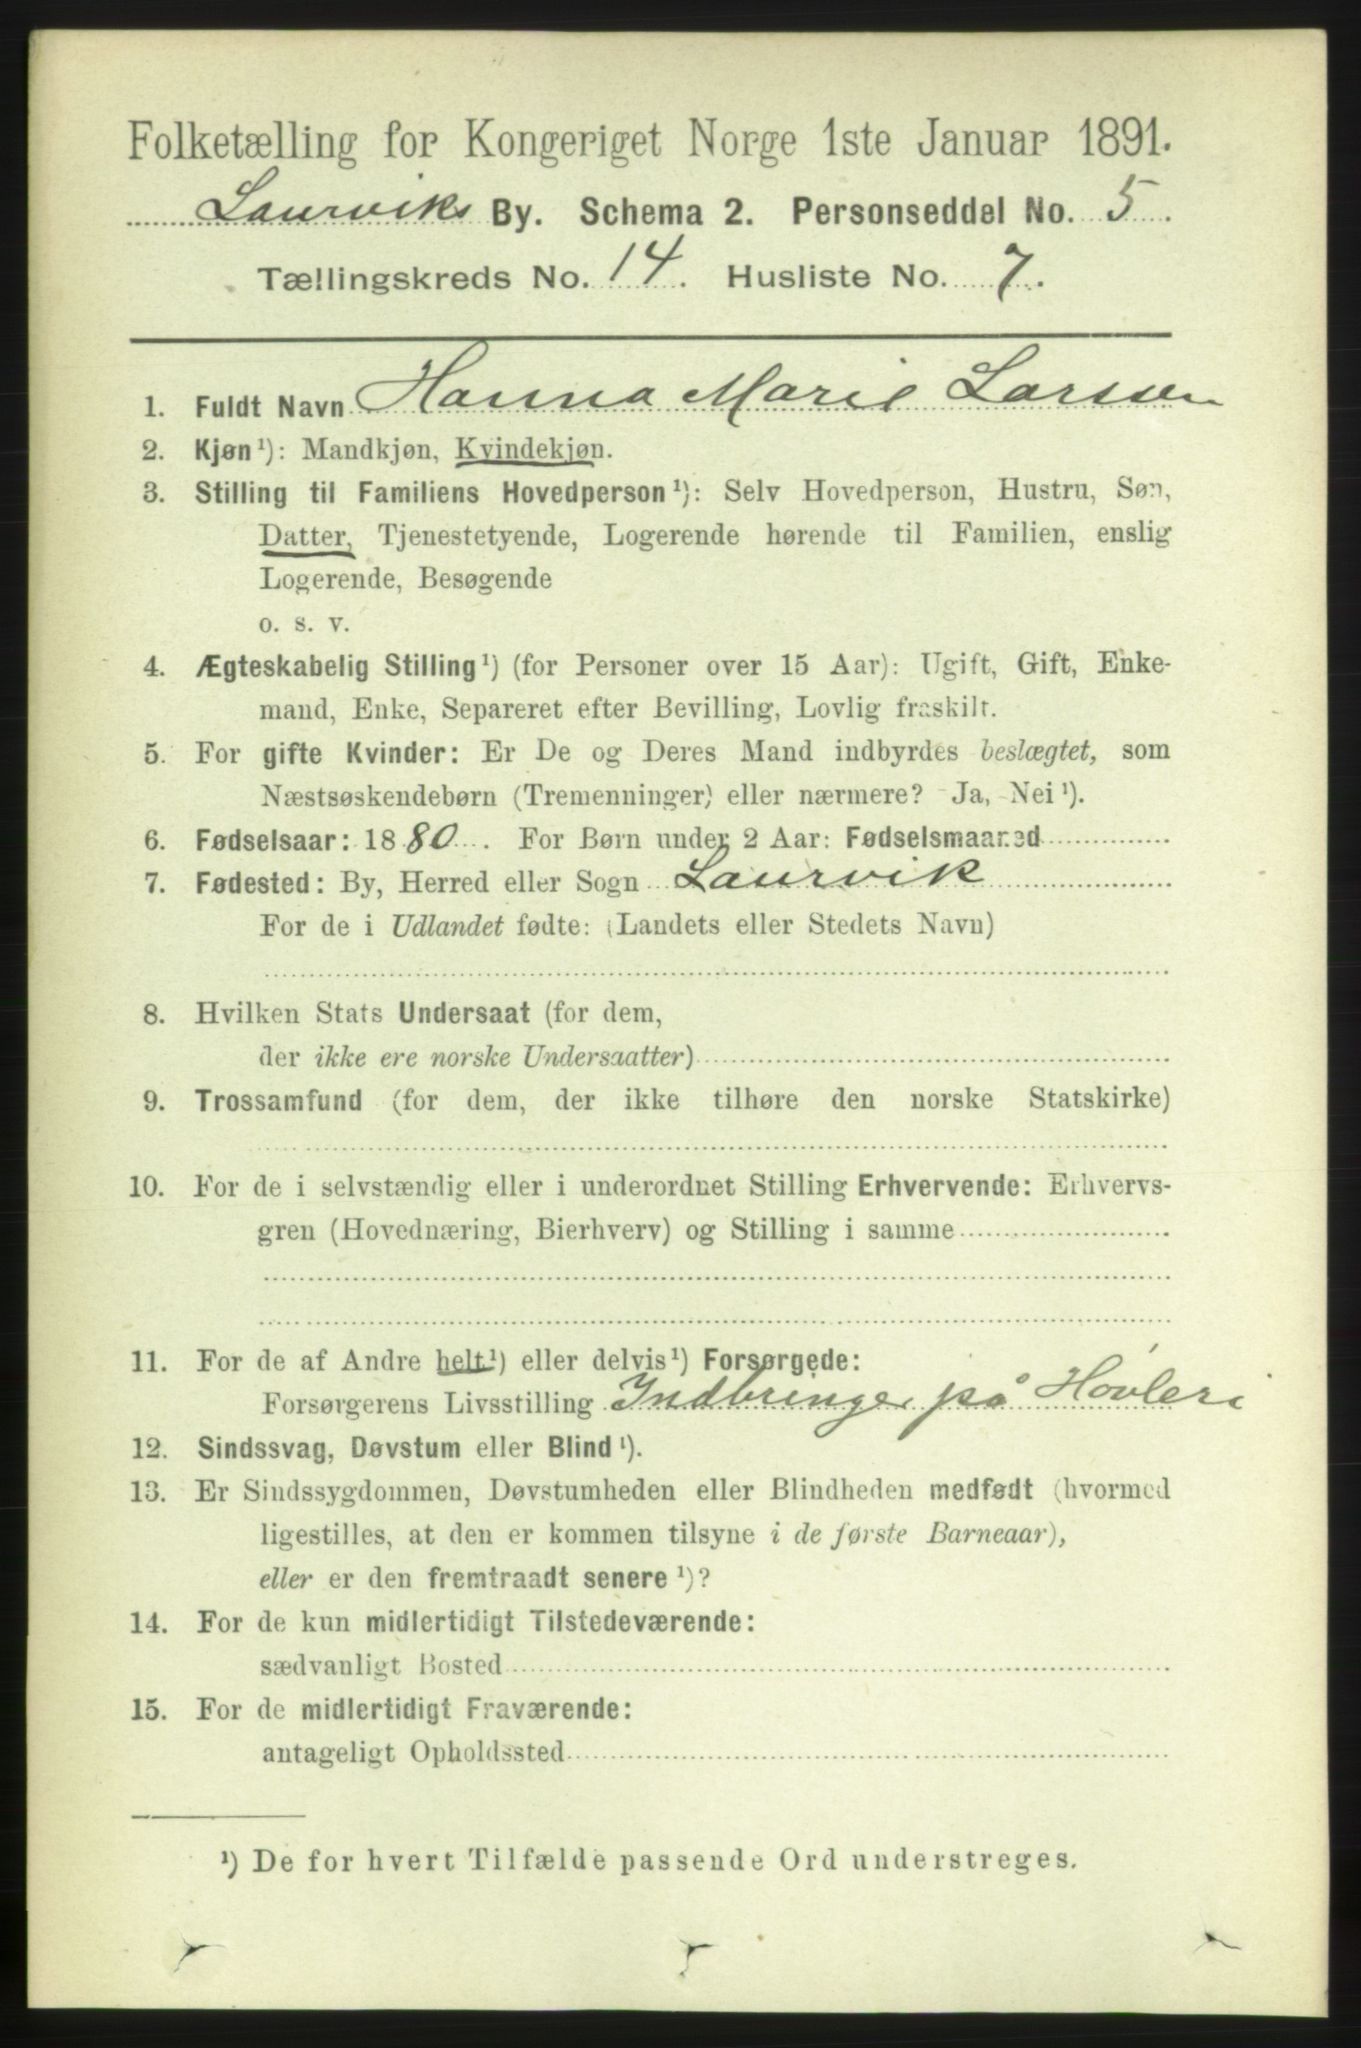 Folketælling for Kongeriget Norge 1ste Januar 1891.
Laurviks By. Schema 2. Personseddel No. 5.
Tællingskreds No. 14. Husliste No. 7.
1. Fuldt Navn Hanna Marie Larssen
2. Kjøn¹): Mandkjøn, Kvindekjøn.
3. Stilling til Familiens Hovedperson¹): Selv Hovedperson, Hustru, Søn,
Datter, Tjenestetyende, Logerende hørende til Familien, enslig
Logerende, Besøgende
o. s. v.
4. Ægteskabelig Stilling¹) (for Personer over 15 Aar): Ugift, Gift, Enke-
mand, Enke, Separeret efter Bevilling, Lovlig fraskilt.
5. For gifte Kvinder: Er De og Deres Mand indbyrdes beslægtet, som
Næstsøskendebørn (Tremenninger) eller nærmere? Ja, Nei¹).
6. Fødselsaar: 1880. For Børn under 2 Aar: Fødselsmaaned
7. Fødested: By, Herred eller Sogn Laurvik
For de i Udlandet fødte: (Landets eller Stedets Navn)
8. Hvilken Stats Undersaat (for dem,
der ikke ere norske Undersaatter)
9. Trossamfund (for dem, der ikke tilhøre den norske Statskirke)
10. For de i selvstændig eller i underordnet Stilling Erhvervende: Erhvervs-
gren (Hovednæring, Bierhverv) og Stilling i samme
11. For de af Andre helt¹) eller delvis¹) Forsørgede:
Forsørgerens Livsstilling Indbringer på Høvleri
12. Sindssvag, Døvstum eller Blind¹).
13. Er Sindssygdommen, Døvstumheden eller Blindheden medfødt (hvormed
ligestilles, at den er kommen tilsyne i de første Barneaar),
eller er den fremtraadt senere¹)?
14. For de kun midlertidigt Tilstedeværende:
sædvanligt Bosted
15. For de midlertidigt Fraværende:
antageligt Opholdssted
¹) De for hvert Tilfælde passende Ord understreges.